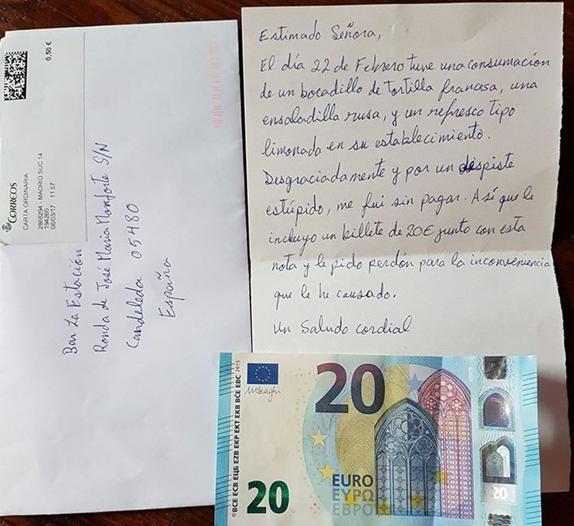 0,50 €
CORREOS
CARTA ORDINARIA
2868294 - MADRID SUC 14
194260
06/03/17 11:57
Bar La Estación
Ronda de José María Monforte S/N
Candeleda 05480
España
Estimado Señora,
El día 22 de Febrero tuve una consumación
de un bocadillo de tortilla francesa, una
ensaladilla rusa, y un refresco tipo
limonada en su establecimiento.
Desgraciadamente y por un despiste
estúpido, me fui sin pagar. Así que le
incluyo un billete de 20€ junto con esta
nota y le pido perdón para la inconveniencia
que le he causado.
Un Saludo cordial
©BCE ECB ЕЦБ EZB EKP EKT EKB BĊE EBC 2015
20
20
EURO
ΕΥΡΩ
ЕВРО
20